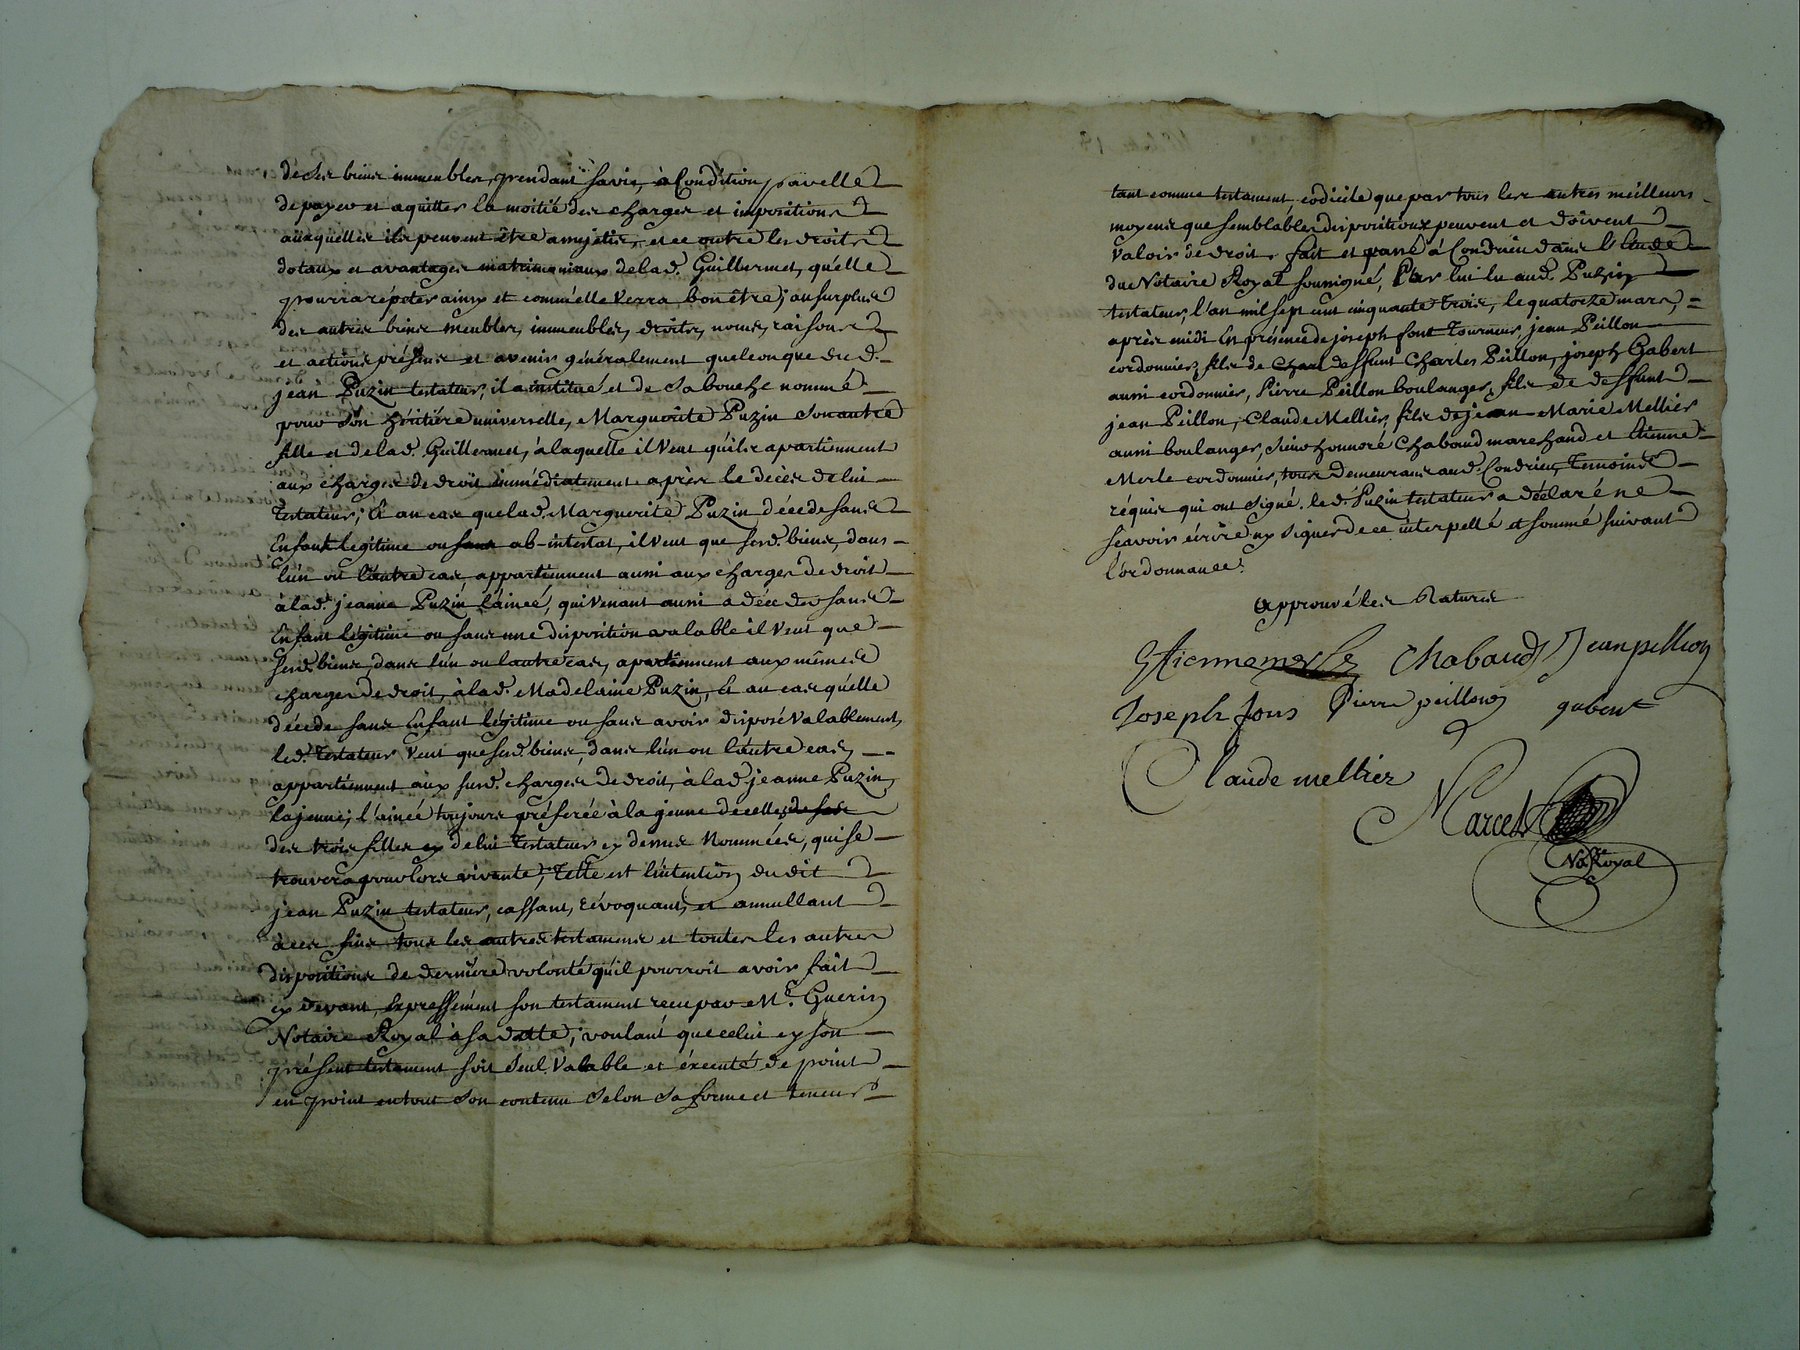 de ses biens immeubles, pendant sa vie, à Condition par elle
de payer et aquitter la moitié des charges et impositions
auxquelles ils peuvent être assujetis, et ce outre les droits
dotaux et avantages matrimoniaux de lad. Guillermet, qu'elle
pourra répéter ainsy et comm'elle verra bon être; au surplus
des autres biens meubles, immeubles, droits, noms, raisons
et actions présens et avenir généralement quelconque du d.
jean Puzin testateur, il a institué et de sa bouche nommé
pour son héritière universelle, Marguerite Puzin son autre
fille et de lad. Guillermet, à laquelle il veut qu'ils apartiennent
aux charges de droit immédiatement après le décès de lui
Testateur; Et au cas que lad. Marguerite Puzin décede sans
Enfant legitime ou ab-intestat, il veut que sesd. biens, dans
l'un ou l'autre cas, appartiennent aussi aux charges de droit
à lad. jeanne Puzin l'ainée, qui venant aussi a décéder sans
Enfant légitime ou sans une disposition valable il veut que
sesd. biens, dans l'un ou l'autre cas, apartiennent aux mêmes
charges de droit, à lad. Madelaine Puzin, Et au cas qu'elle
décede sans Enfant légitime ou sans avoir disposé valablement,
led. Testateur veut que sesd. biens, dans l'un ou l'autre cas,
appartiennent aux susd. charges de droit, à lad. jeanne Puzin
la jeune, l'ainée toujours préférée à la jeune de celles
des trois filles de lui Testateur cy dessus Nommées, qui se
trouvera pour lors vivante; Telle est l'intention du dit
jean Puzin testateur, cassant, révoquant, et annullant
à ces fins tous les autres testamens et toutes les autres
dispositions de derniere volonté qu'il pourroit avoir fait
cy devant, expressément son testament recu par Me. Guerin
Notaire Royal à sa datte; voulant que celui cy son
présent testament soit seul valable et éxecuté de point
en point en tout son contenu selon sa forme et teneur
tant comme testament, codicile que par tous les autres meilleurs
moyens que semblables dispositions peuvent et doivent
valoir de droit. fait et passé à Condrieu dans l'étude
du Notaire Royal soussigné, Par lui lu aud. Puzin
testateur, l'an mil sept cent cinquante trois, le quatorze mars,
après midi En présence de joseph font Tourneur, jean Peillon
cordonnier fils de deffunt Charles Peillon, joseph Gabert
aussi cordonnier, Pierre Peillon boulanger, fils de deffunt
jean Peillon, Claude Mellier, fils de jean Marie Mellier
aussi boulanger, honnoré Chabaud marchand et Etienne
Merle cordonnier, tous demeurans aud. Condrieu, Temoins
réquis qui ont signé. led. Puzin testateur a déclaré ne
scavoir écrire ny signer de ce interpellé et sommé suivant
l'ordonnance.
Approuvé les Ratures
Etienne merle Chabaud Jean peillion
Joseph fons Pierre peillon gabert
Claude mellier
Marcet
No.re Royal